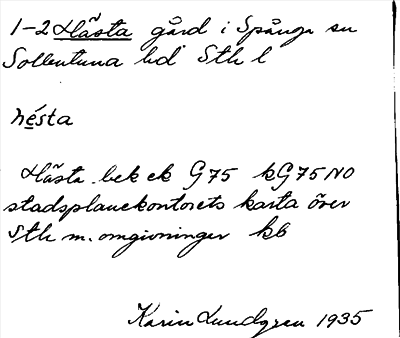 1-2 Hästa gård i Spånga sn
Sollentuna hd Sth l
hésta
Hästa bek ek G75 kG75NO
stadsplanekontorets karta över
Sth m. omgivningar kb
Karin Lundgren 1935